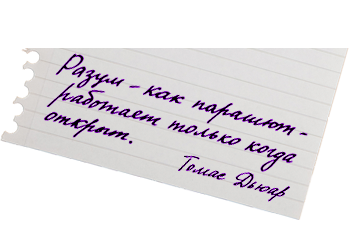 Разум - как парашют -
работает только когда
открыт.
Томас Дьюар